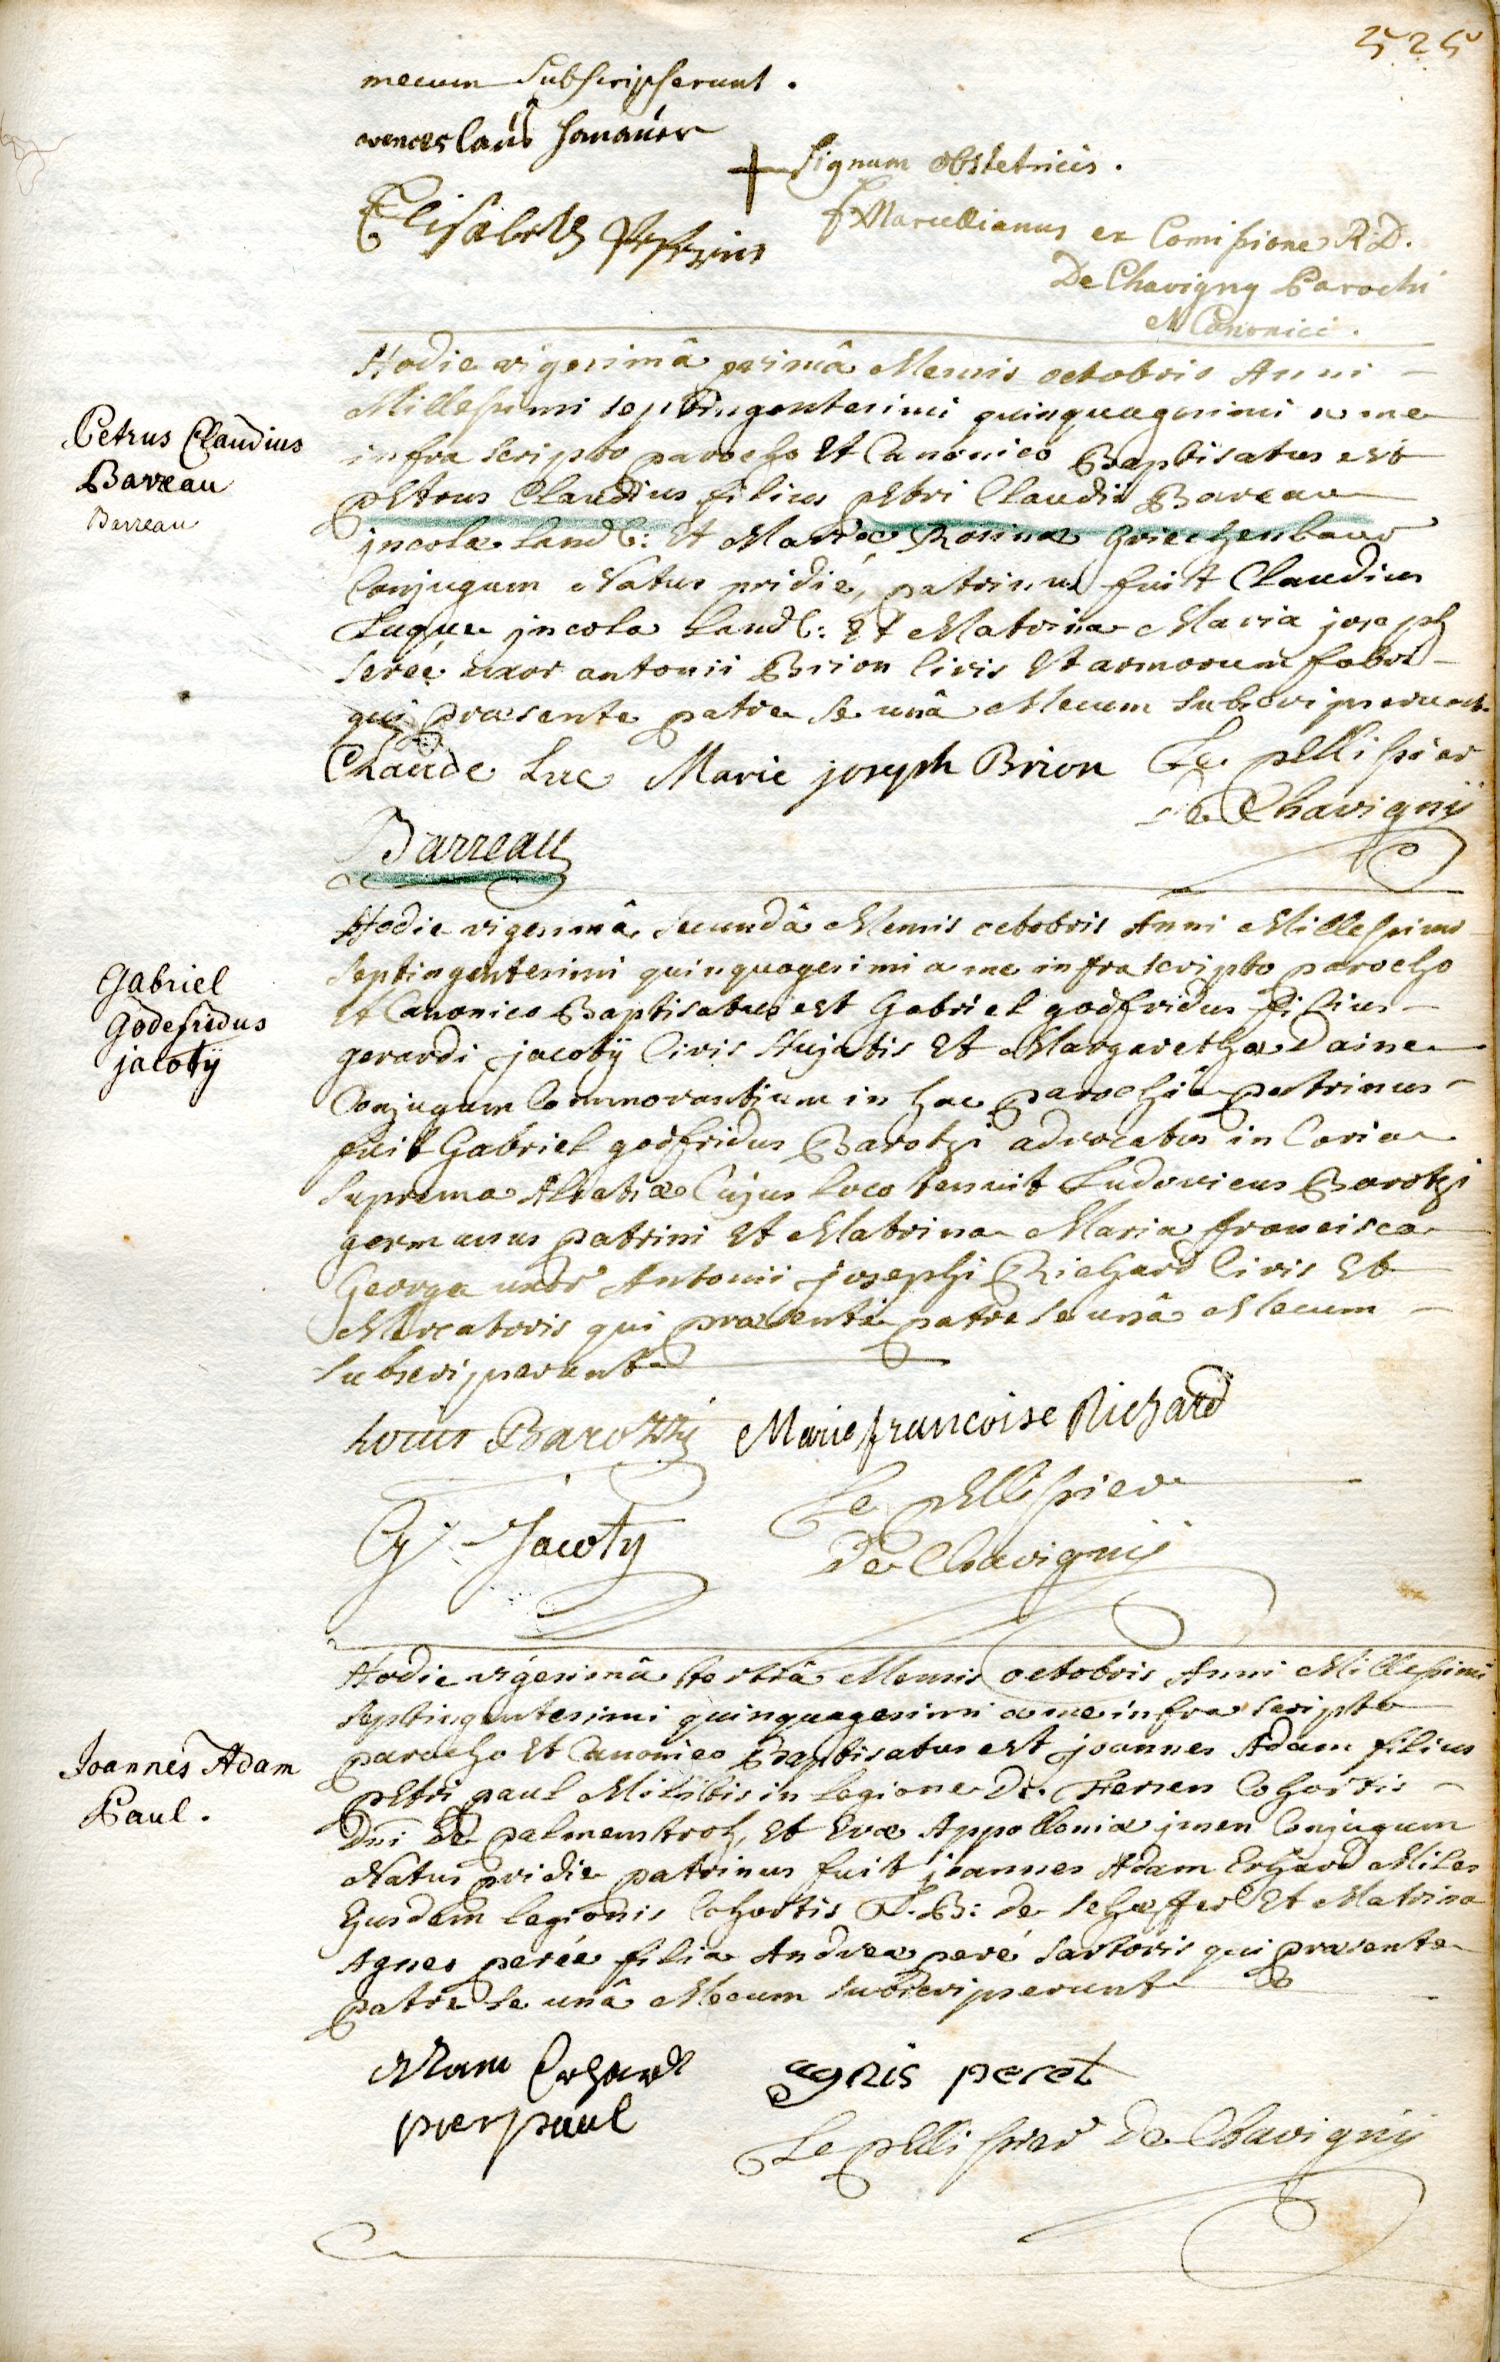 525
mecum subscripserunt.
wenceslaus hanauer
+ signum obstetricis.
Elisabeth
f. Marcellianus ex Comissione R.D.
De Chavigny Parochi
et Canonici.
Hodie vigesimâ primâ Mensis octobris Anni
Millesimi septingentesimi quinquagesimi a me
infra scripto parocho Et Canonico Baptisatus est
Petrus Claudius
Barreau
Barreau
petrus Claudius filius petri Claudii Bareau
jncolæ Landb: Et Mariæ Rosinæ Griechenbaur
Conjugum Natus pridie, patrinus fuit Claudius
Luque jncola Landb: Et Matrina Maria joseph
serée uxor antonii Brion Civis Et armorum fabri
qui præsente patre se unâ Mecum subscripserunt
Claude Luc Marie joseph Brion Le pellissier
De Chavignÿ
Barreau
Hodie vigesimâ secundâ Mensis octobris Anni Millesimi
septingentesimi quinquagesimi a me infrascripto parocho
Gabriel
Godefridus
jacobÿ
Et Canonico Baptisatus est Gabriel godfridus filius
gerardi jacobÿ Civis Hujatis Et Margarethæ Daine
Conjugum Commorantium in hac parochiâ patrinus
fuit Gabriel godfridus Barotzi advocatus in Curia
suprema Alsatiæ Cujus loco tenuit Ludovicus Barotzi
germanus patrini Et Matrina Maria francisca
George uxor Antonii josephi Richard Civis Et
Mercatoris qui præsente patre se unâ Mecum
subscripserunt
Louis Barozzi Marie francoise Richard
G. Jacoby
Le pellissier
De Chavignÿ
Hodie vigesimâ tertiâ Mensis octobris Anni Millesimi
septingentesimi quinquagesimi a me infra scripto
Joannes Adam
Paul.
parocho Et Canonico Baptisatus est joannes Adam filius
petri paul Militis in legione De Fersen Cohortis
Dni De palmenstroh, Et Evæ Appolloniæ jmen Conjugum
Natus pridie patrinus fuit joannes Adam Erhard Miles
Ejusdem legionis Cohortis L. B: de schæffer Et Matrina
Agnes perée filia Andreæ peré sartoris qui præsente
patre se unâ Mecum subscripserunt
Adam Erhardt agnis peret
pier paul
Le pellissier De Chavignÿ